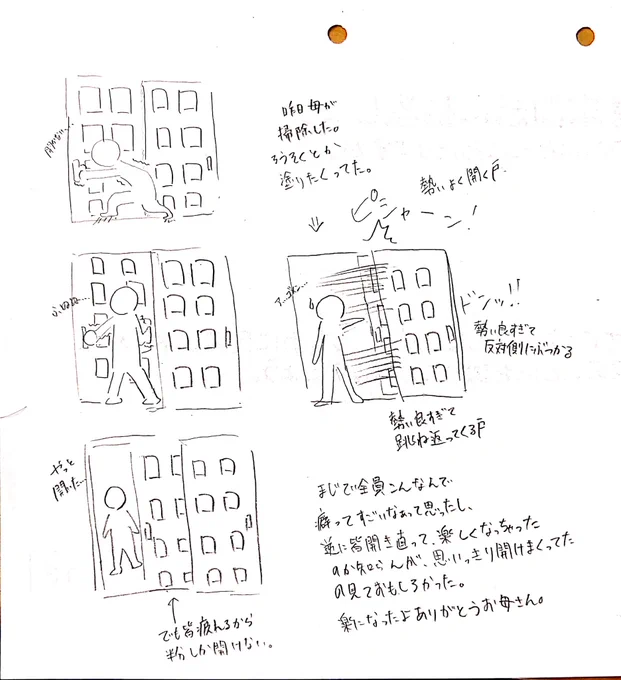 開かない…
ふぬぬ…
やっと
開いた…
でも皆疲れるから
粉しか開けない。
昨日母が
掃除した。
ろうそくとか
塗りたくってた。
勢いよく開く戸
ピシャーン!
ア、ゴメン…
ドンッ!!
勢い良すぎて
反対側にぶつかる
勢い良すぎて
跳ね返ってくる戸
まじで全員こんなんで
癖ってすごいなぁって思ったし、
逆に皆開き直って、楽しくなっちゃった
のか知らんが、思いっきり開けまくってた
の見ておもしろかった。
楽になったよありがとうお母さん。